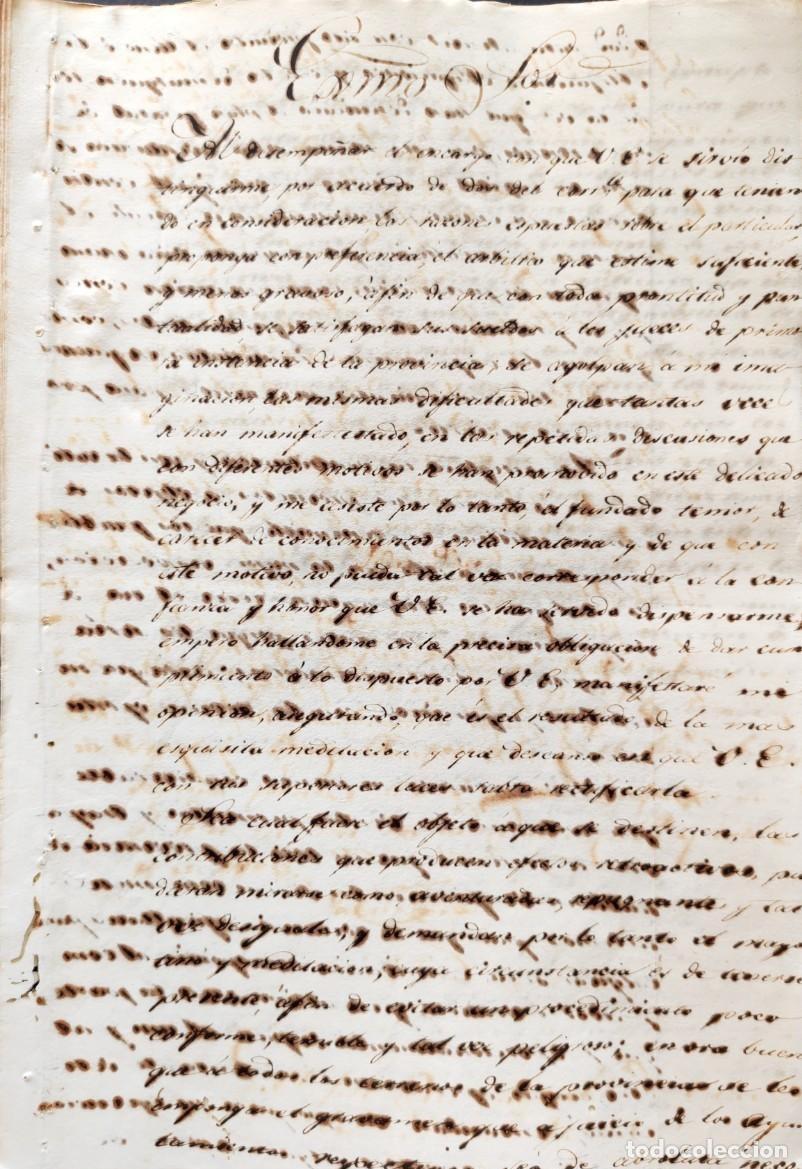 Exmo Sor
Al desempeñar el encargo con que V. E. se sirvió dis
tinguirme por acuerdo de dos del corrte para que tenien
do en consideracion las razones espuestas sobre el particular,
proponga con preferencia, el arbitrio que estime suficiente
y menos gravoso, á fin de que con toda prontitud y pun
tualidad se satisfagan sus sueldos á los jueces de prime
ra instancia de la provincia, se agolpan á mi ima
ginacion las mismas dificultades que tantas veces
se han manifestado, en las repetidas discusiones que
con diferentes motivos se han promovido en este delicado
negocio, y me asiste por lo tanto, el fundado temor, de
carecer de conocimientos en la materia y de que con
este motivo, no pueda tal vez corresponder á la con
fianza y honor que V. E. se ha servido dispensarme,
empero hallandome en la precisa obligacion de dar cum
plimiento á lo dispuesto por V. E. manifestaré mi
opinion, asegurando, que es el resultado de la mas
esquisita meditacion y que descanso en que V. E.
con sus superiores luces sabrá rectificarla.
Sea cual fuere el objeto á que se destinen, las
contribuciones que producen efectos retroactivos, pu
dieran mirarse como aventuradas, repugnantes y tal
vez desiguales, y demandan por lo tanto el mayor
tino y meditacion; cuya circunstancia es de tenerse
presente, á fin de evitar un procedimiento poco
conforme, temible y tal vez peligroso; en ora buena
que de todos los terrenos de la provincia se les
imponga el gravamen que á juicio de los Ayun
tamientos sea de absoluta nece
todocoleccion